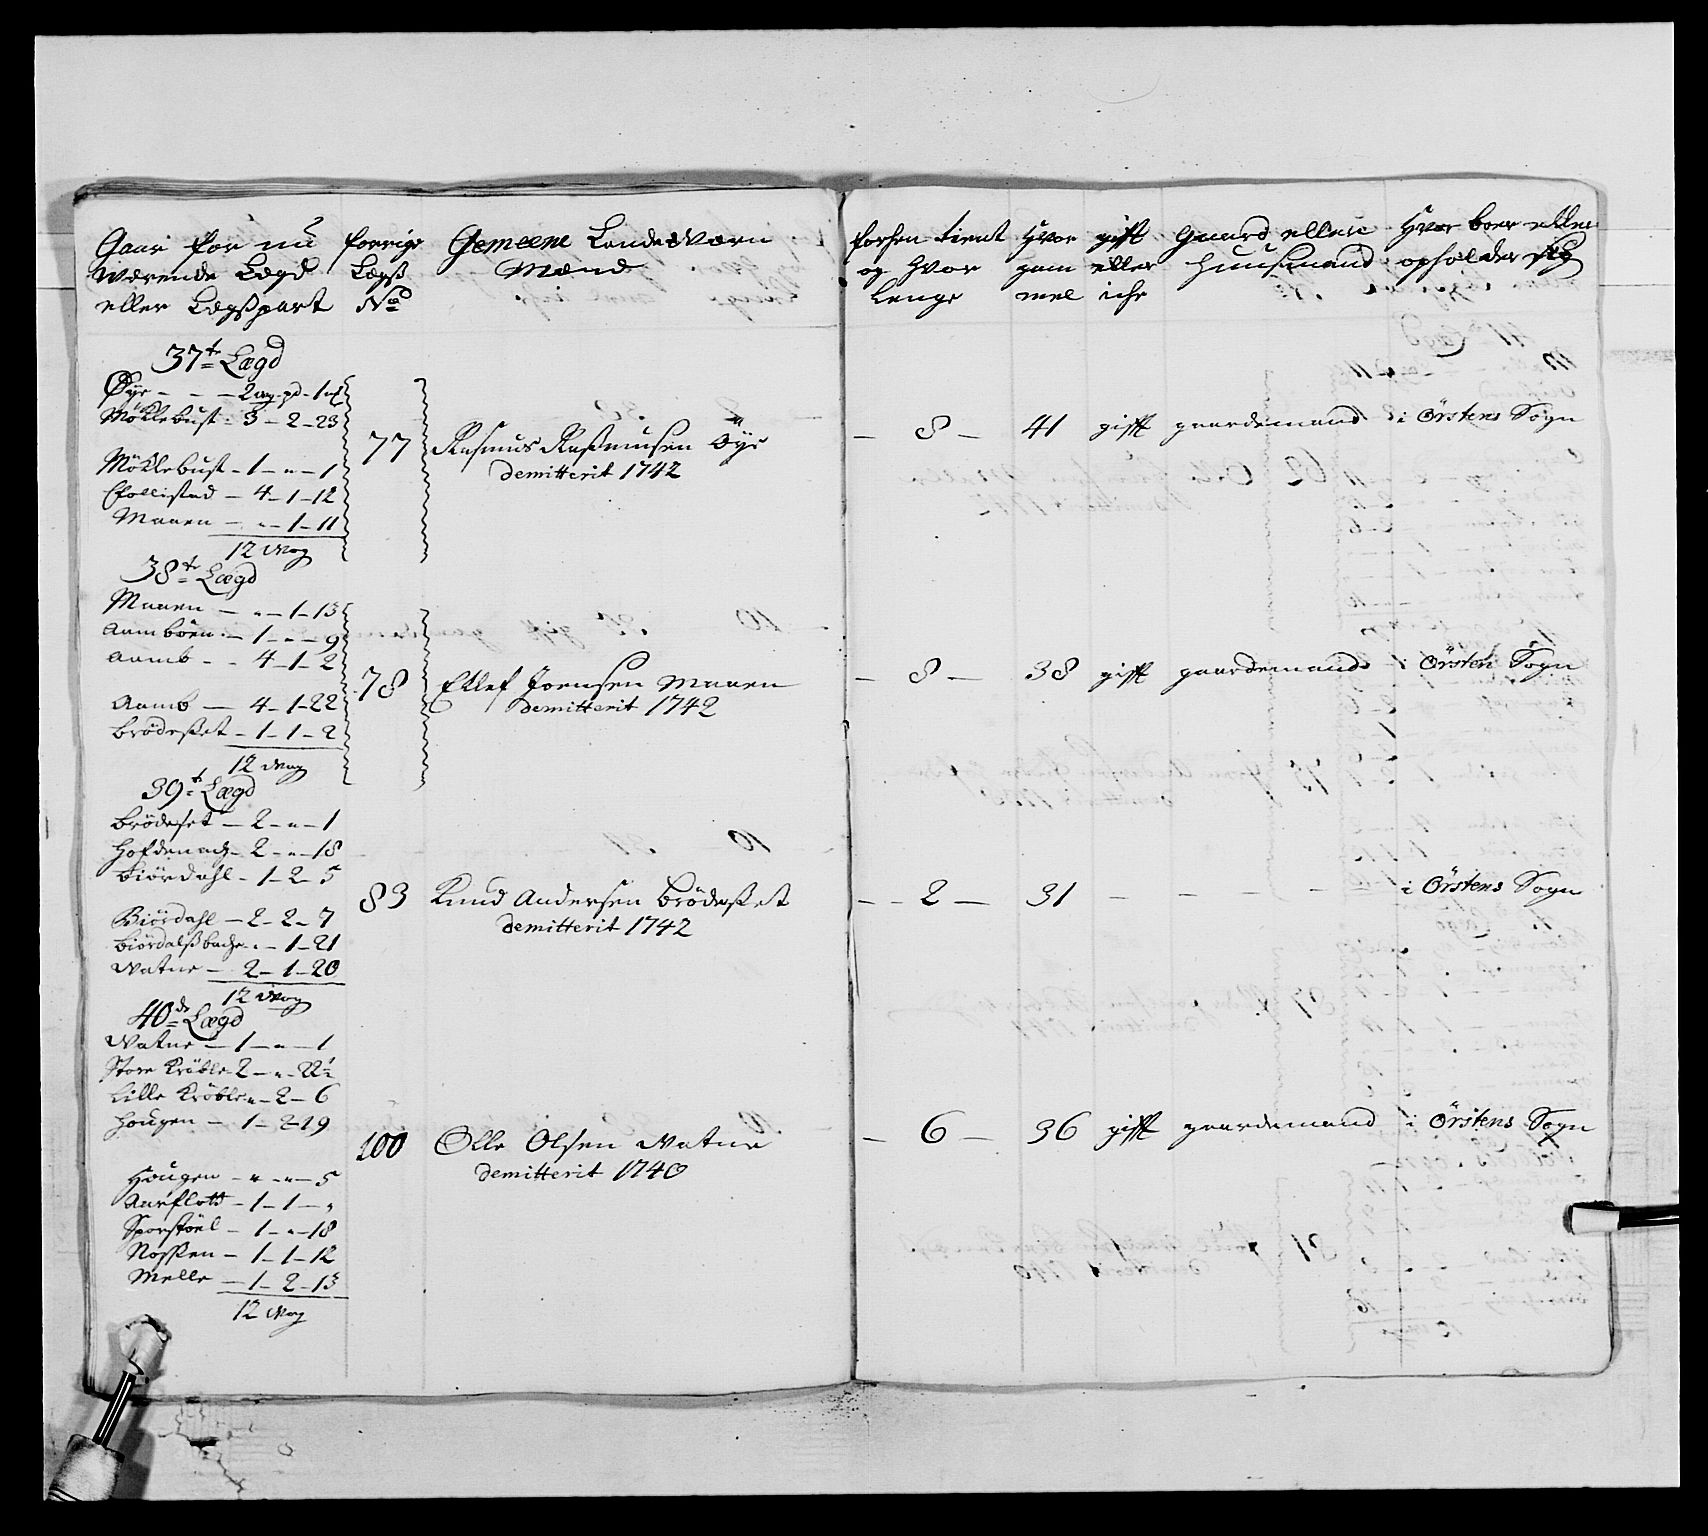 Gaar for nu
værende Lægd
eller Lægßpart
forrige
Lægß
No
Gemeene Landeværn
Mænd
forhen tient
og hvor
lenge
Hvor
gam
mel
gift
eller
ichr
Gaard eller
huusmand
Hvor boer eller
opholder sig
37te Lægd
Øye - - - 2 vog - pd - 1 mk
Möklebust - 3 - 2 - 23
Möklebust - 1 - " - 1
- 4 - 1 - 12
Maaen - " - 1 - 11
12 vog
77
Rasmus Raßmusen Öye
demitterit 1742
- 8 -
41
gifft
gaardemand
i Örstens Sogn
38te Lægd
Maaen - " - 1 - 13
Aambøen - 1 - " - 9
Aamb - - 4 - 1 - 2
Aamb - 4 - 1 - 22
brödeßet - 1 - 1 - 2
12 vog
78
Ellef Joensen Maaen
demitterit 1742
- 8 -
38
gifft
gaardemand
i Örsten Sogn
39te Lægd
brödeset - 2 - " - 1
- 2 - " - 18
biördahl - 1 - 2 - 5
Biördahl - 2 - 2 - 7
biördalßbache - " - 1 - 21
Vatne - 2 - 1 - 20
12 vog
83
Knud Andersen brödeßet
demitterit 1742
- 2 -
31
- - - -
i Örstens Sogn
40de Lægd
Vatne - 1 - " - 1
Store Kröble - 2 - " - 22½
Lille Kröble - " - 2 - 6
Hougen - 1 - 2 - 19
Hougen - " - " - 5
Aurflott - 1 - 1 - "
Sporstöel - 1 - " - 18
Noßen - 1 - 1 - 12
Melle - 1 - 2 - 13
12 vog
100
Olle Olsen Vatne
demitterit 1740
- 6 -
36
gifft
gaardemand
i Örstens Sogn